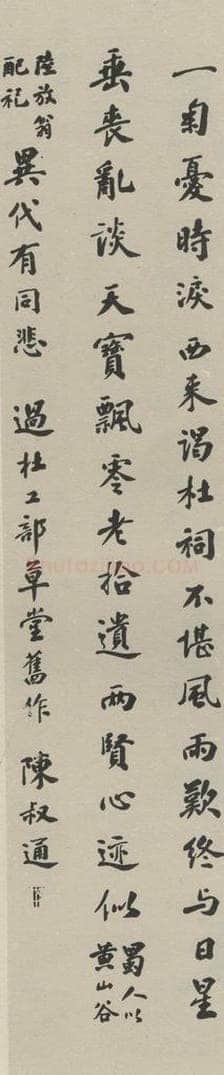 一掬憂時淚西来謁杜祠不堪風雨歎終与日星
垂喪亂談天寶飄零老拾遺兩賢心迹似蜀人以黄山谷
陸放翁配祀異代有同悲 過杜工部草堂舊作 陳叔通